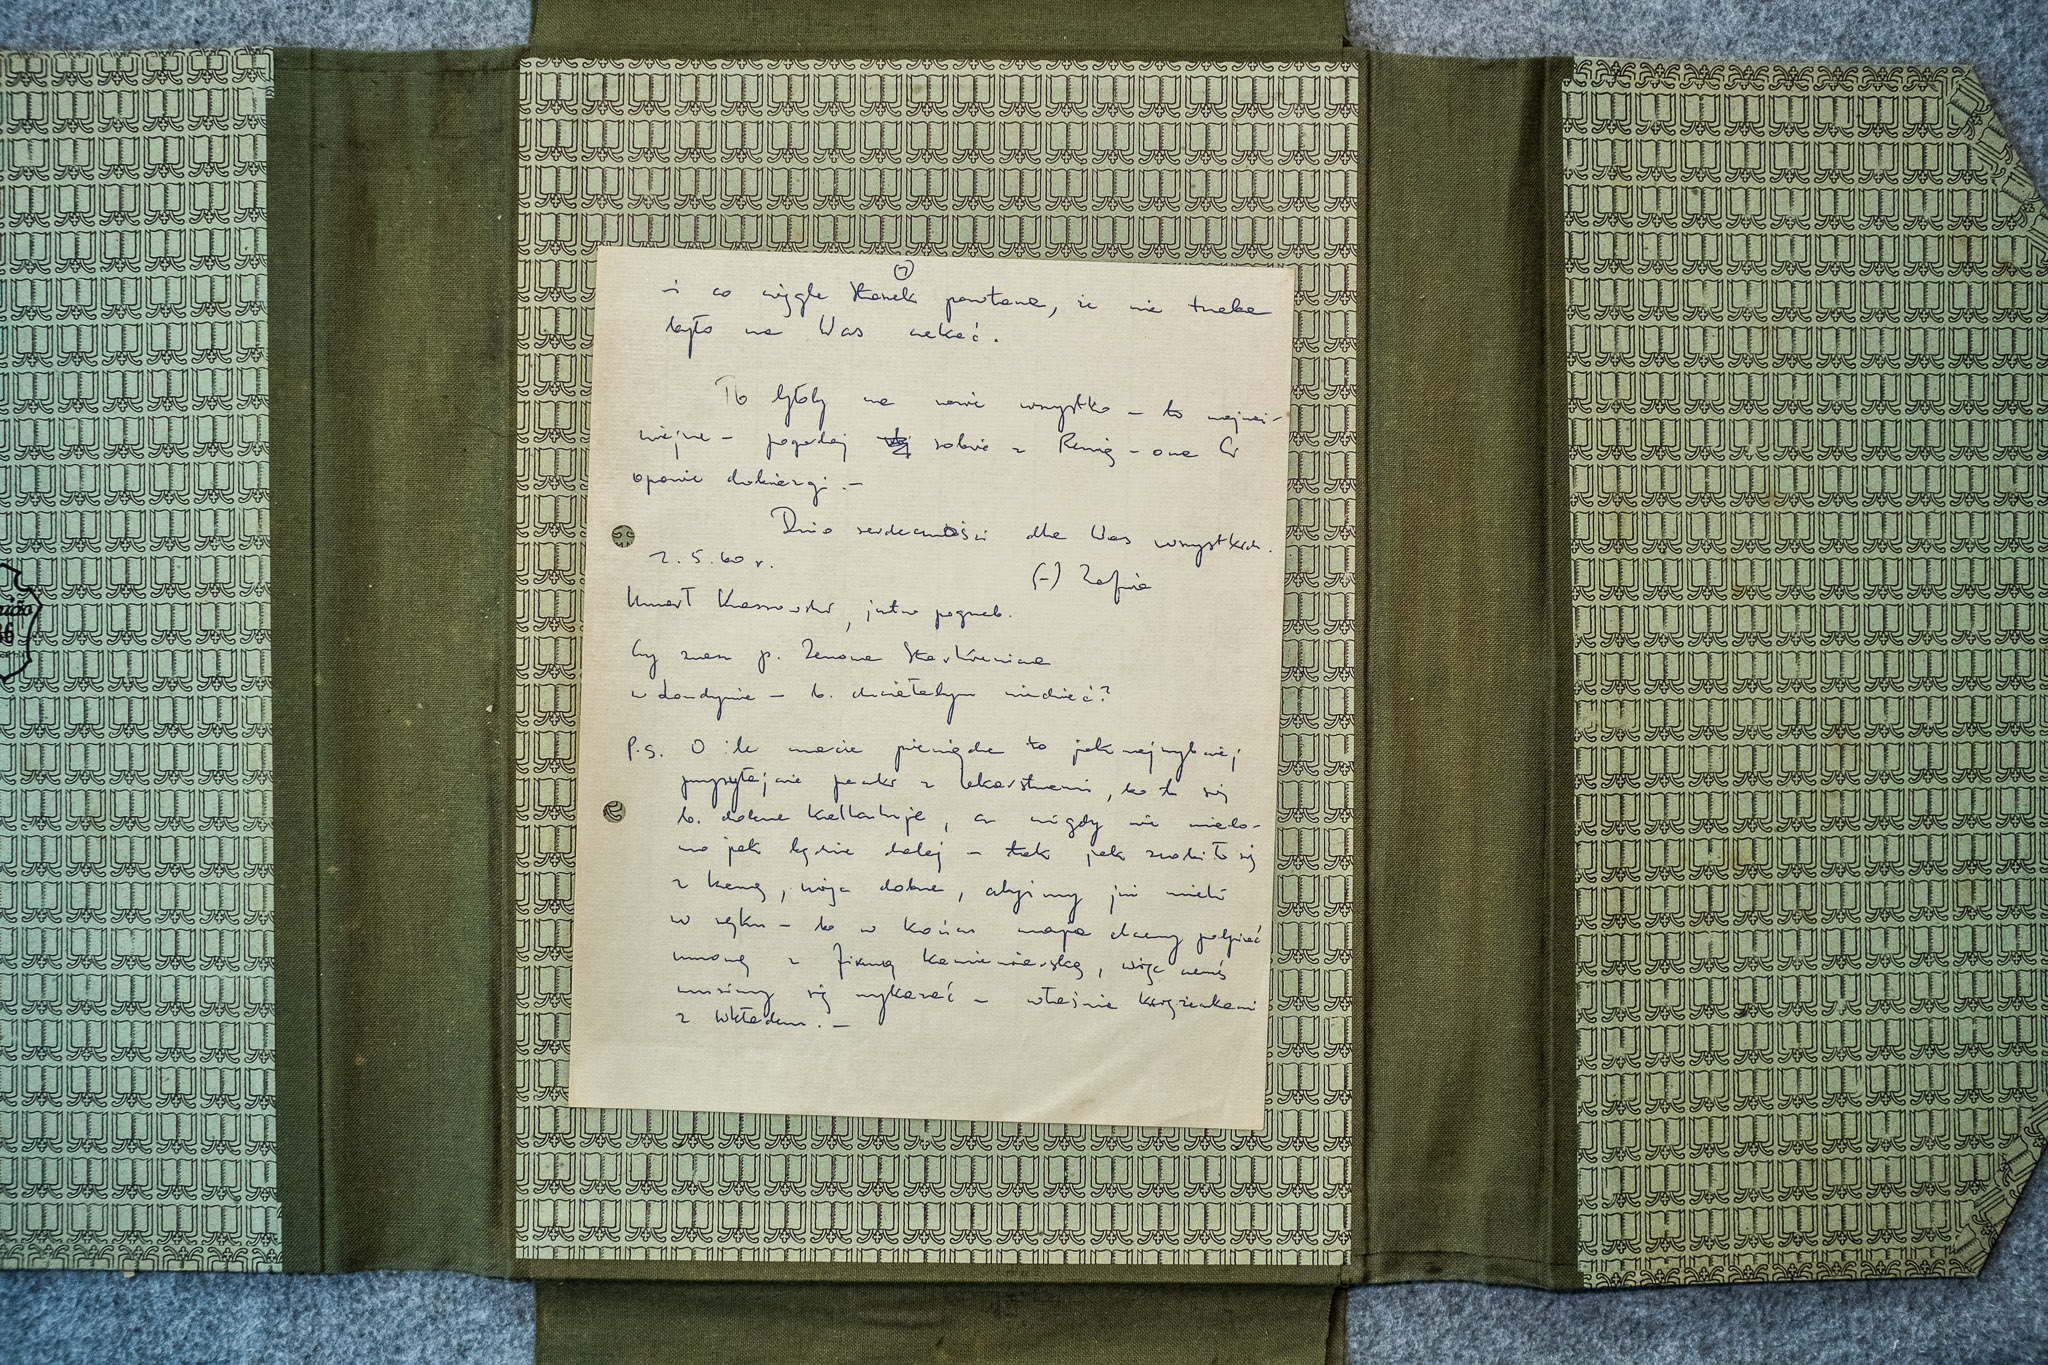 7
i co ciągle Stasek powtarza, że nie trzeba
było na Was czekać.
To byłoby na razie wszystko – to najważ-
niejsze – pogadaj sobie z Renią – ona Ci
opowie dokładniej. –
Dużo serdeczności dla Was wszystkich.
2. 5. 60 r.
(–) Zofia
Umarł Kossowski, jutro pogrzeb.
Czy znasz p. Zenona
w Londynie – b. chciałabym wiedzieć?
P.S. O ile macie pieniądze to jak najszybciej
przysyłajcie paczki z lekarstwami, bo to się
b. dobrze kalkuluje, a nigdy nie wiado-
mo jak będzie dalej – tak jak zrobiło się
z , więc dobrze, abyśmy już mieli
w ręku – bo w końcu maja chcemy podpisać
umowę z firmą kamieniarską, więc czemś
musimy się wykazać – właśnie książeczkami
z wkładem. –